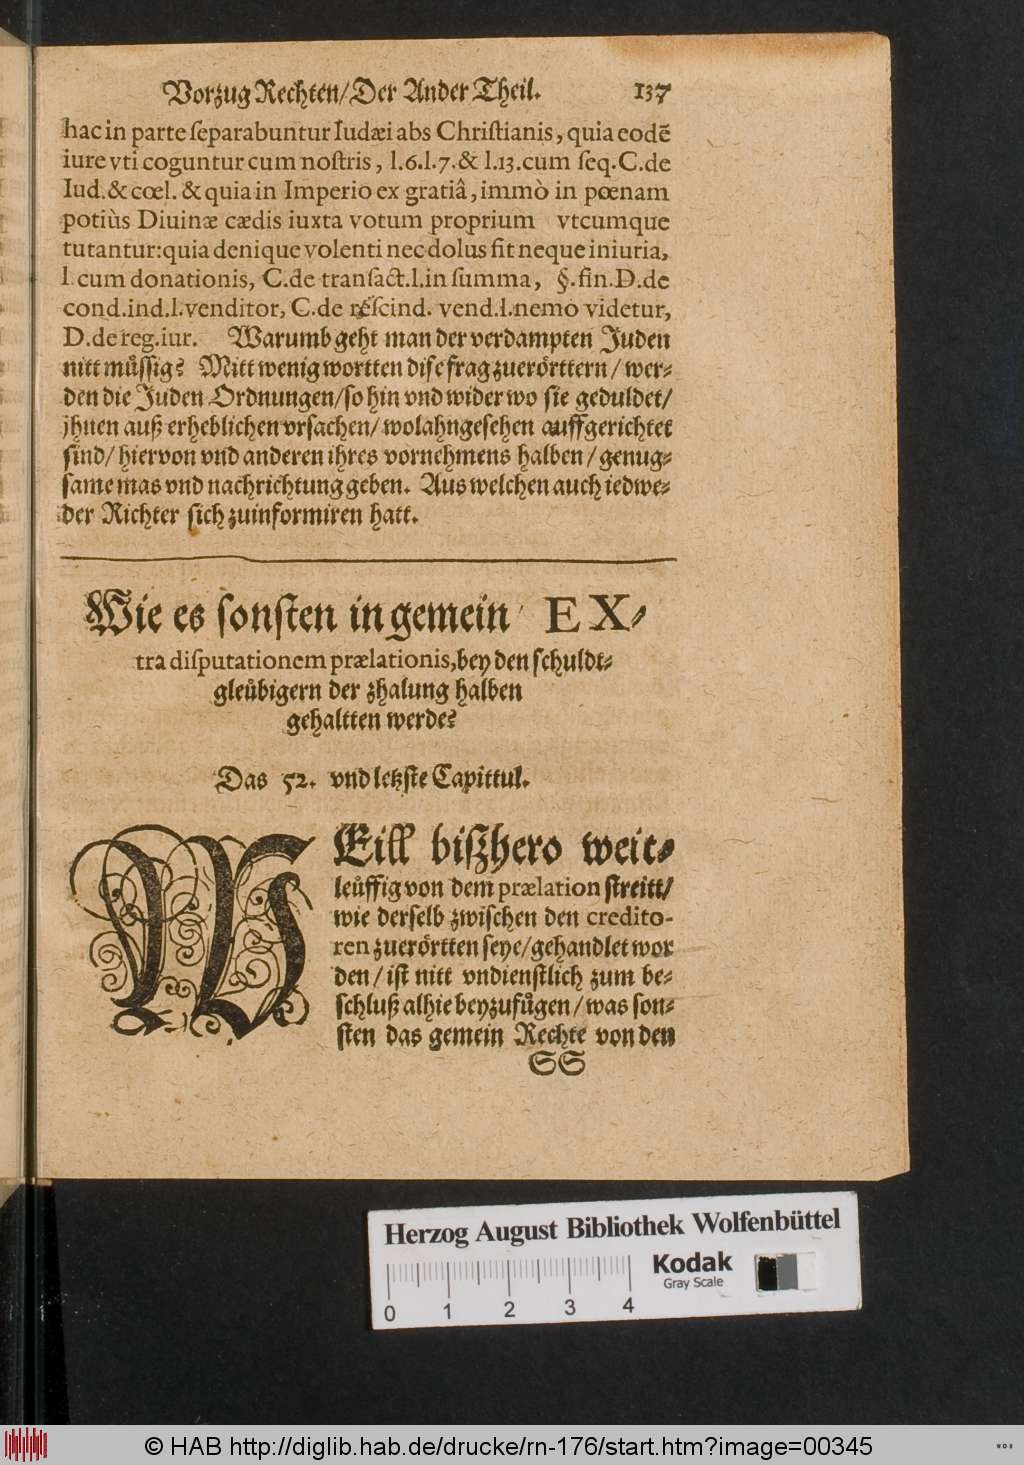 Vorzug Rechten/Der Ander Theil. 137
hac in parte ſeparabuntur Iudæi abs Chriſtianis, quia eodē
iure vti coguntur cum noſtris, l.6.l.7.& l.13.cum ſeq.C.de
Iud.& cœl. & quia in Imperio ex gratiâ, immò in pœnam
potiùs Diuinæ cædis iuxta votum proprium vtcumque
tutantur: quia denique volenti nec dolus fit neque iniuria,
l. cum donationis, C.de tranſact.l.in ſumma, §.fin.D.de
cond.ind.l.venditor, C.de reſcind. vend.l.nemo videtur,
D.de reg.iur. Warumb geht man der verdampten Juden
nitt muͤſſig? Mitt wenig wortten diſe frag zuerörttern / wer⸗
den die Juden Ordnungen/ſo hin vnd wider wo ſie geduldet/
jhnen auß erheblichen vrſachen/ wolahngeſehen auffgerichtet
ſind/ hiervon vnd anderen ihres vornehmens halben/ genug⸗
ſame mas vnd nachrichtung geben. Aus welchen auch iedwe⸗
der Richter ſich zuinformiren hatt.
Wie es ſonſten in gemein EX⸗
tra diſputationem prælationis, bey den ſchuldt⸗
gleuͤbigern der zhalung halben
gehaltten werde?
Das 52. vnd letzſte Capittul.
WEill biſzhero weit⸗
leuͤffig von dem prælation ſtreitt/
wie derſelb zwiſchen den credito-
ren zuerörtten ſeye/gehandlet wor
den/ iſt nitt vndienſtlich zum be⸗
ſchluß alhie beyzufuͤgen/ was ſon⸗
ſten das gemein Rechte von den
SS
Herzog August Bibliothek Wolfenbüttel
Kodak
Gray Scale
0 1 2 3 4
© HAB http://diglib.hab.de/drucke/rn-176/start.htm?image=00345